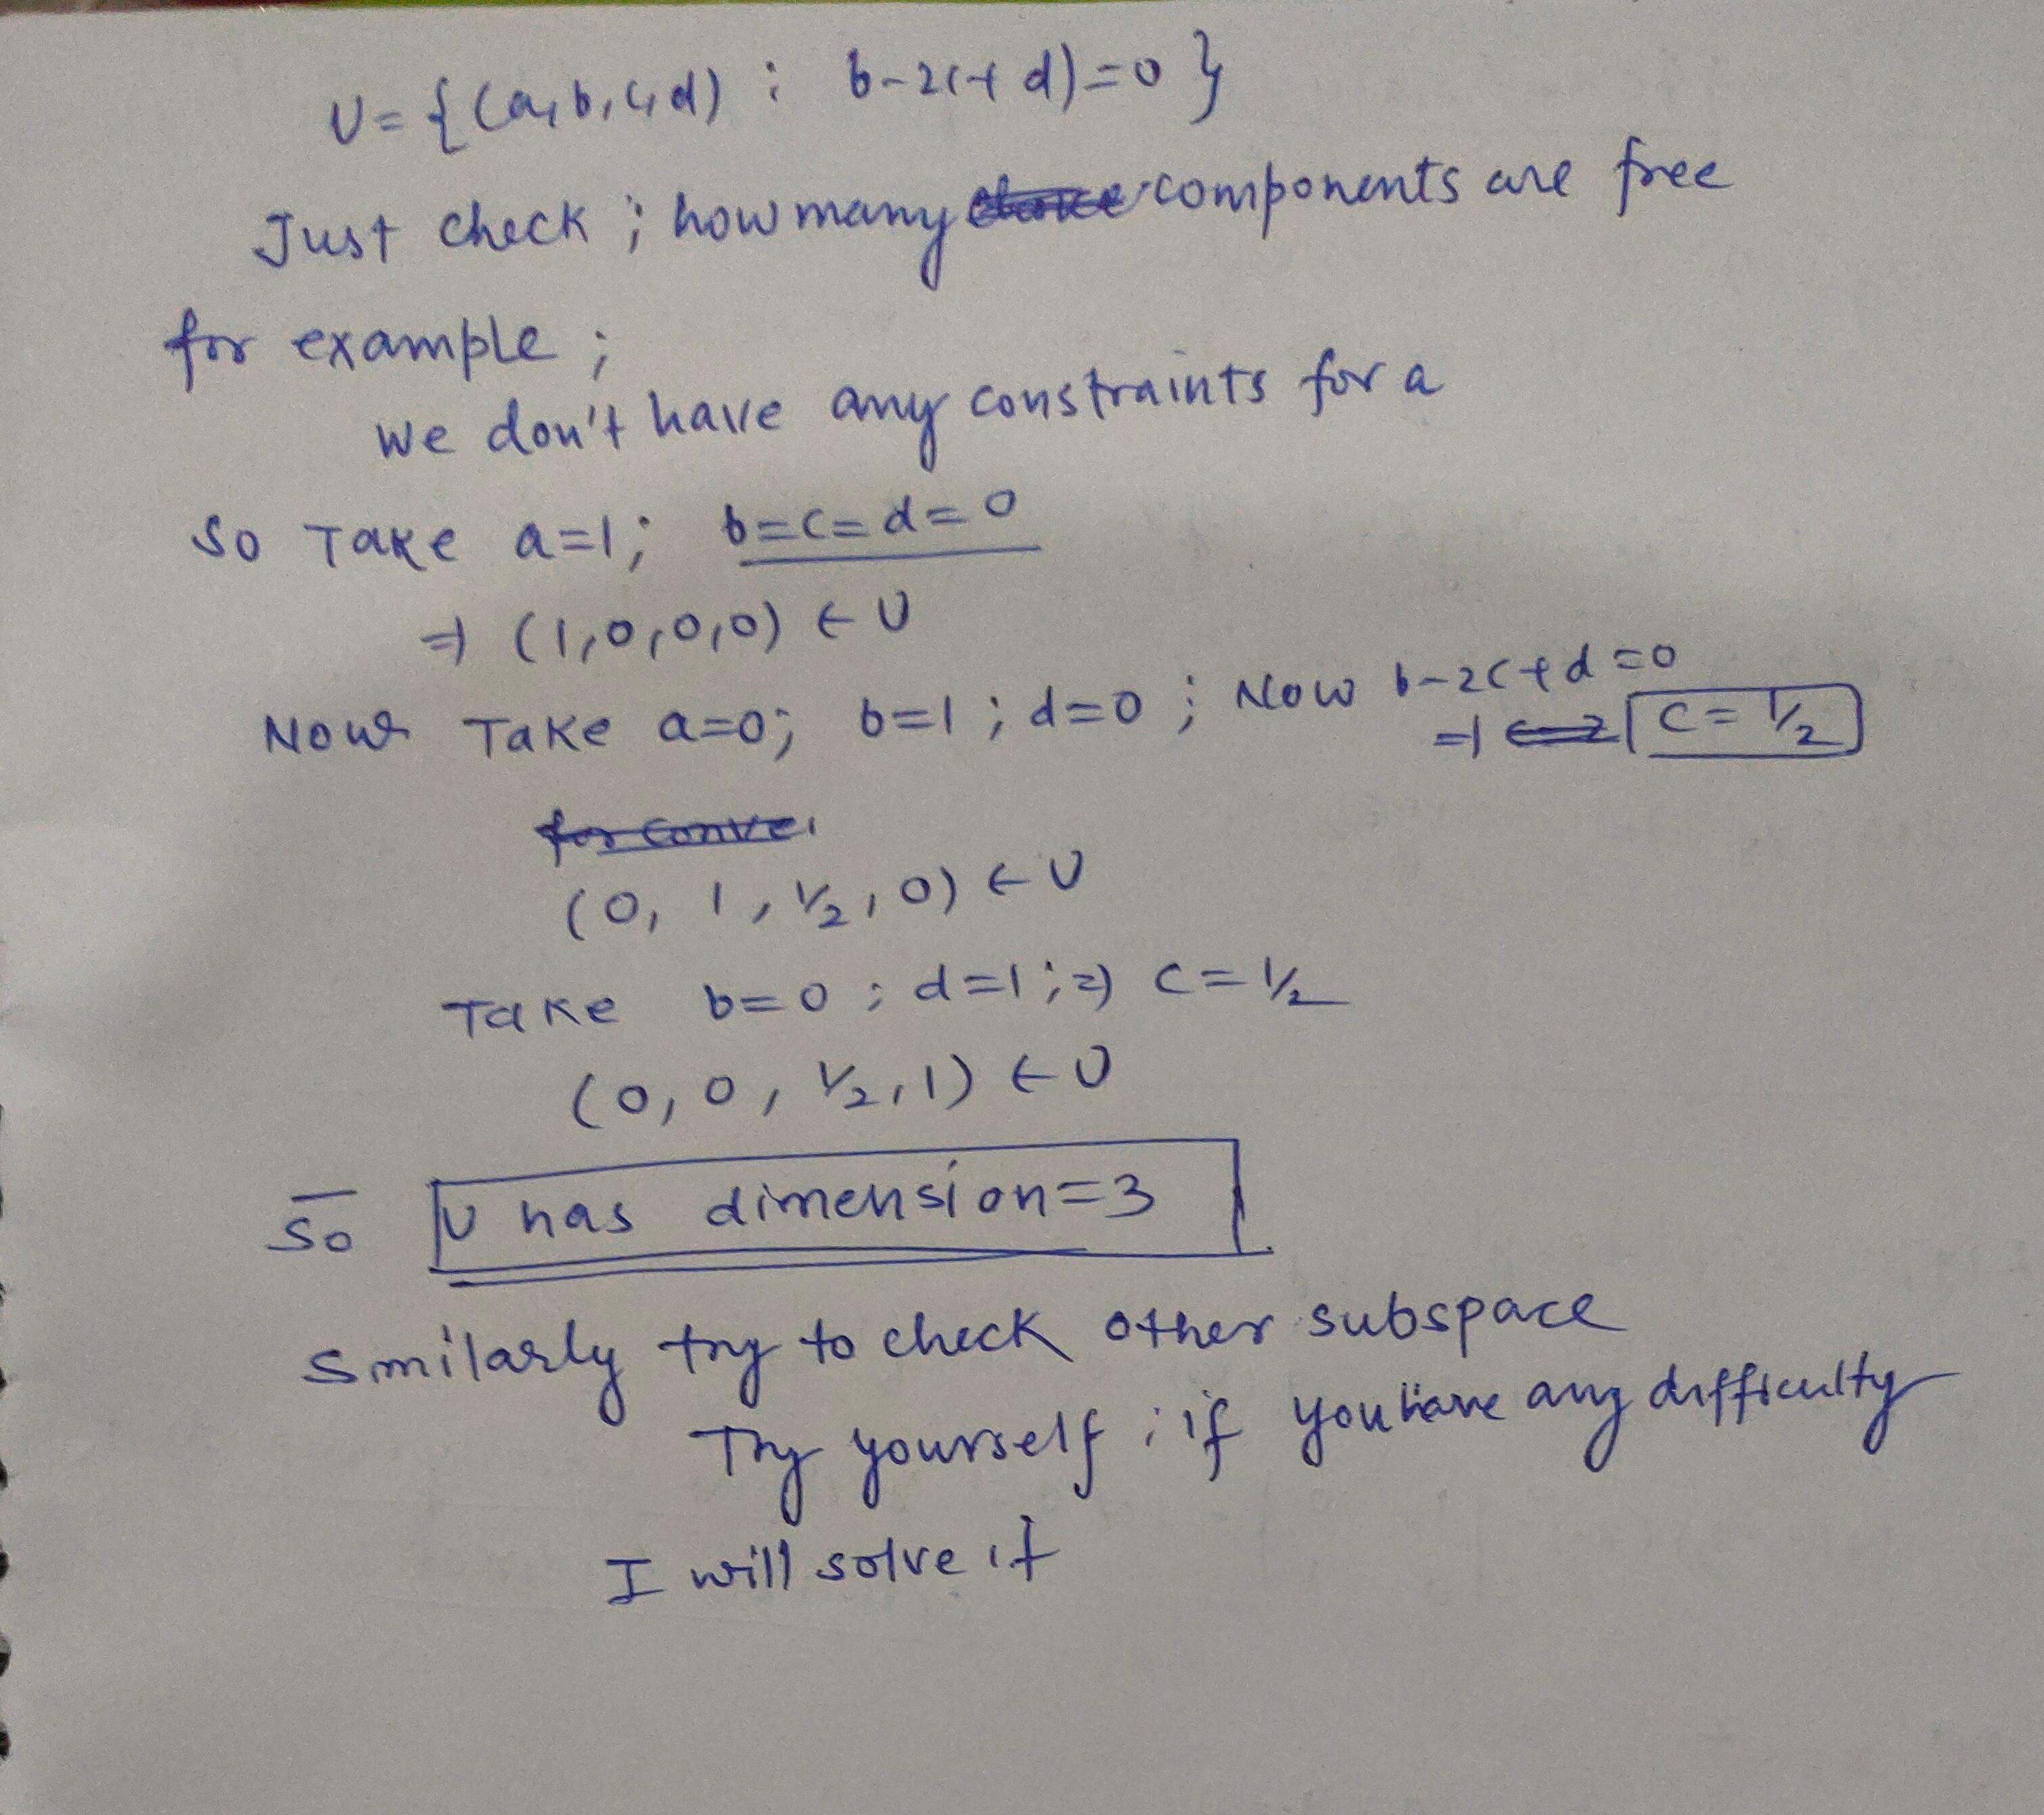 U = { (a, b, c, d) : b-2c+d)=0 }
Just check ; how many components are free
for example ;
we don't have any constraints for a
so Take a=1; b=c=d=0
⇒ (1,0,0,0) ∈ U
Now Take a=0; b=1; d=0 ; Now b-2c+d=0
⇒ c=1/2
for conve
(0, 1, 1/2, 0) ∈ U
Take b=0 ; d=1 ; ⇒ c=1/2
(0, 0, 1/2, 1) ∈ U
so U has dimension=3
Similarly try to check other subspace
Try yourself ; if you have any difficulty
I will solve it